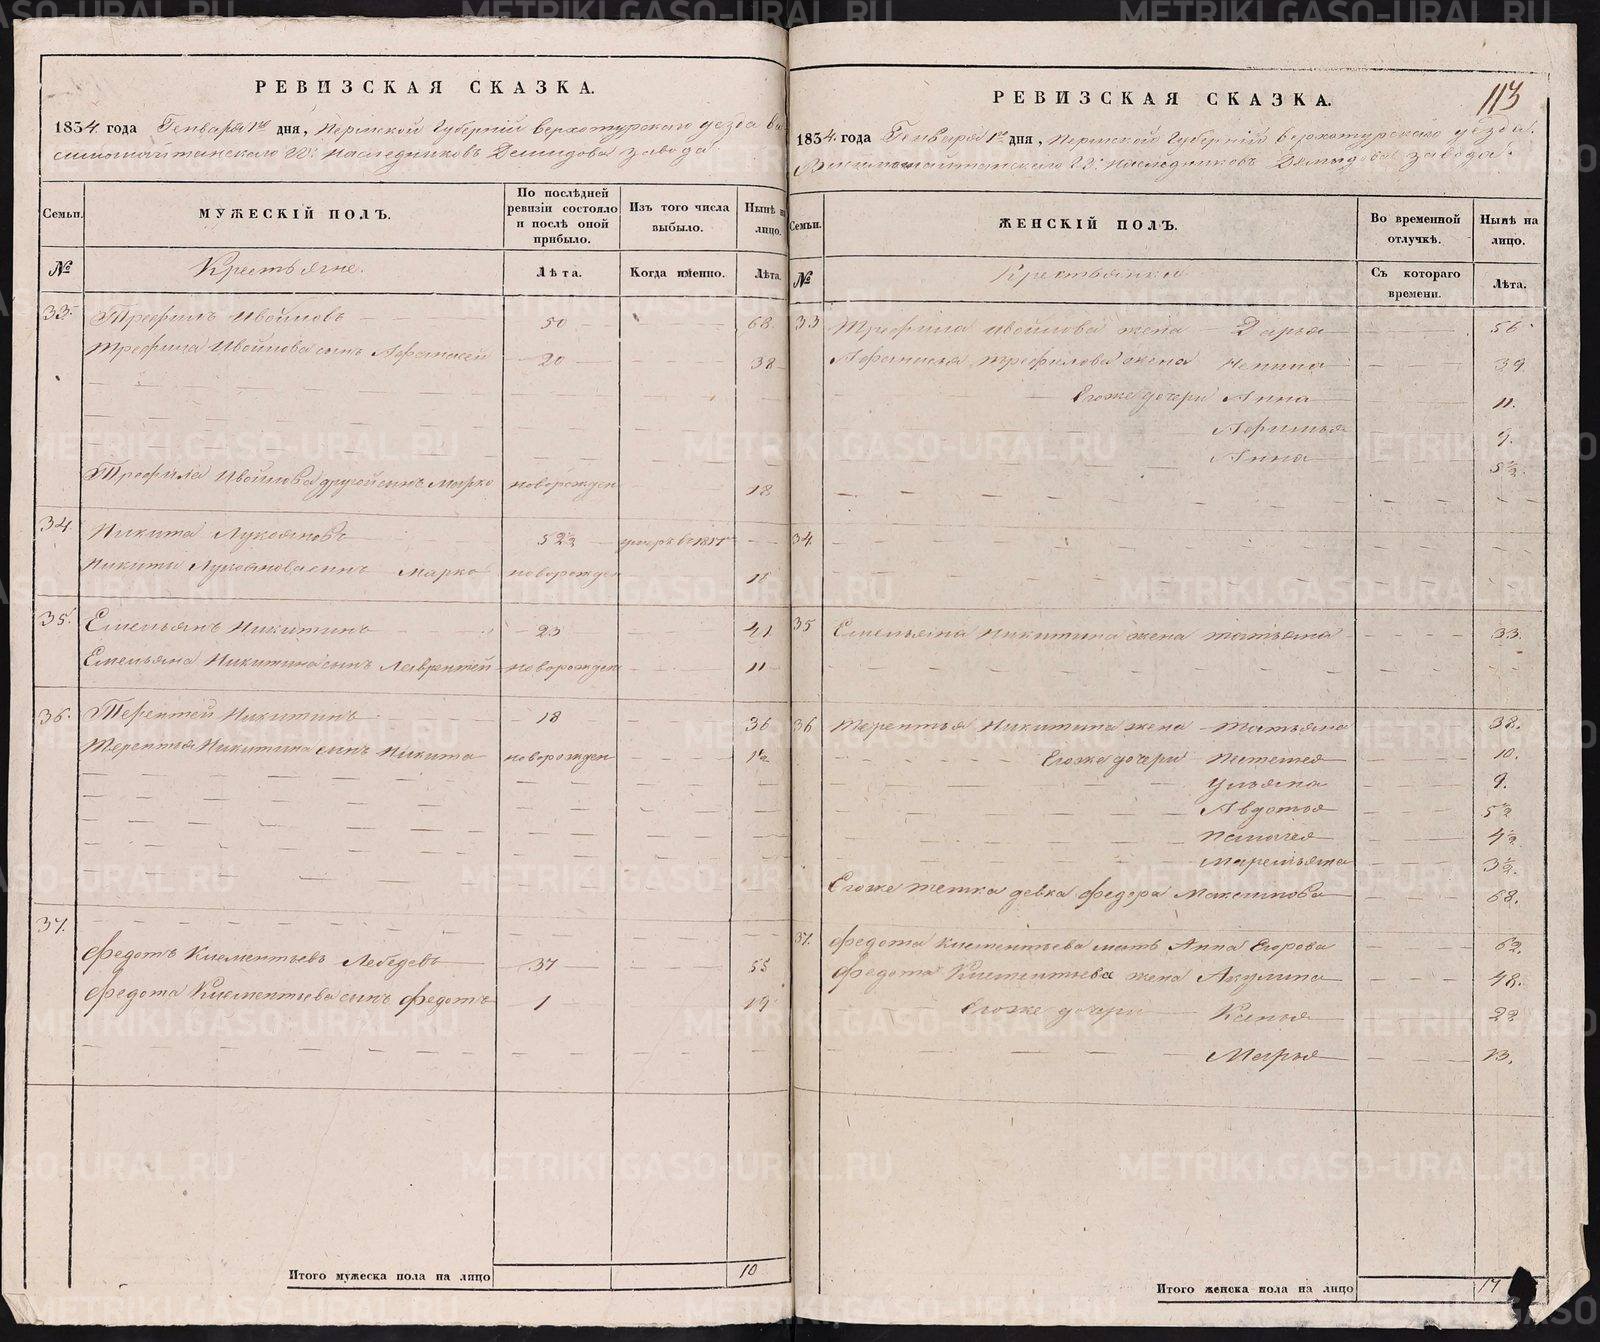 РЕВИЗСКАЯ СКАЗКА.
1834. года Генваря 1го дня, Пермской Губернiй Верхотурского уезда Ви
симошайтанского ГГ: Наследниковъ Демидова завода
Семьи. МУЖЕСКIЙ ПОЛЪ. По послѣдней ревизiи состояло и послѣ оной прибыло. Изъ того числа выбыло. Нынѣ на лицо.
№ Крестьяне. Лѣта. Когда именно. Лѣта.
33. Трефилъ Ивойловъ 50 68
Трефила Ивойлова сынъ Афанасей 20 38
Трефила Ивойлова другой сынъ Марко новорожден 18
34. Никита Лукояновъ 52½ умеръ в 1817
Никиты Лукоянова сынъ Марко новорожден 18
35. Емельянъ Никитинъ 23 41
Емельяна Никитина сынъ Лаврентей новорожден 11
36. Терентей Никитинъ 18 36
Терентья Никитина сынъ Никита новорожден 1½
37.
Федотъ Клементьевъ Лебедевъ 37 55
Федота Клементьева сынъ Федотъ 1 19
Итого мужеска пола на лицо 10
113
РЕВИЗСКАЯ СКАЗКА.
1834. года Генваря 1го дня, Пермской Губернiй Верхотурского уезда.
Висимошайтанского ГГ: Наследниковъ Демидова завода.
Семьи. ЖЕНСКIЙ ПОЛЪ. Во временной отлучкѣ. Нынѣ на лицо.
№ Крестьянки Съ котораго времени. Лѣта.
33 Трефила Ивойлова жена Дарья 56
Афанасья Трефилова жена 39
Его же дочери Анна 11.
Афимья 9.
Анна 5½
34.
35 Емельяна Никитина жена Татьяна 33.
36 Терентья Никитина жена Татьяна 38.
Его же дочери 10.
Ульяна 9.
Авдотья 5½
4½
Маремьяна 3½.
Его же тетка девка Федора Максимова 68.
37. Федота Клементьева мать Анна Егорова 62.
Федота Клементьева жена Акулина 48.
Его же дочери Ксенья 22
Марья 13.
Итого женска пола на лицо 17
METRIKI.GASO-URAL.RU